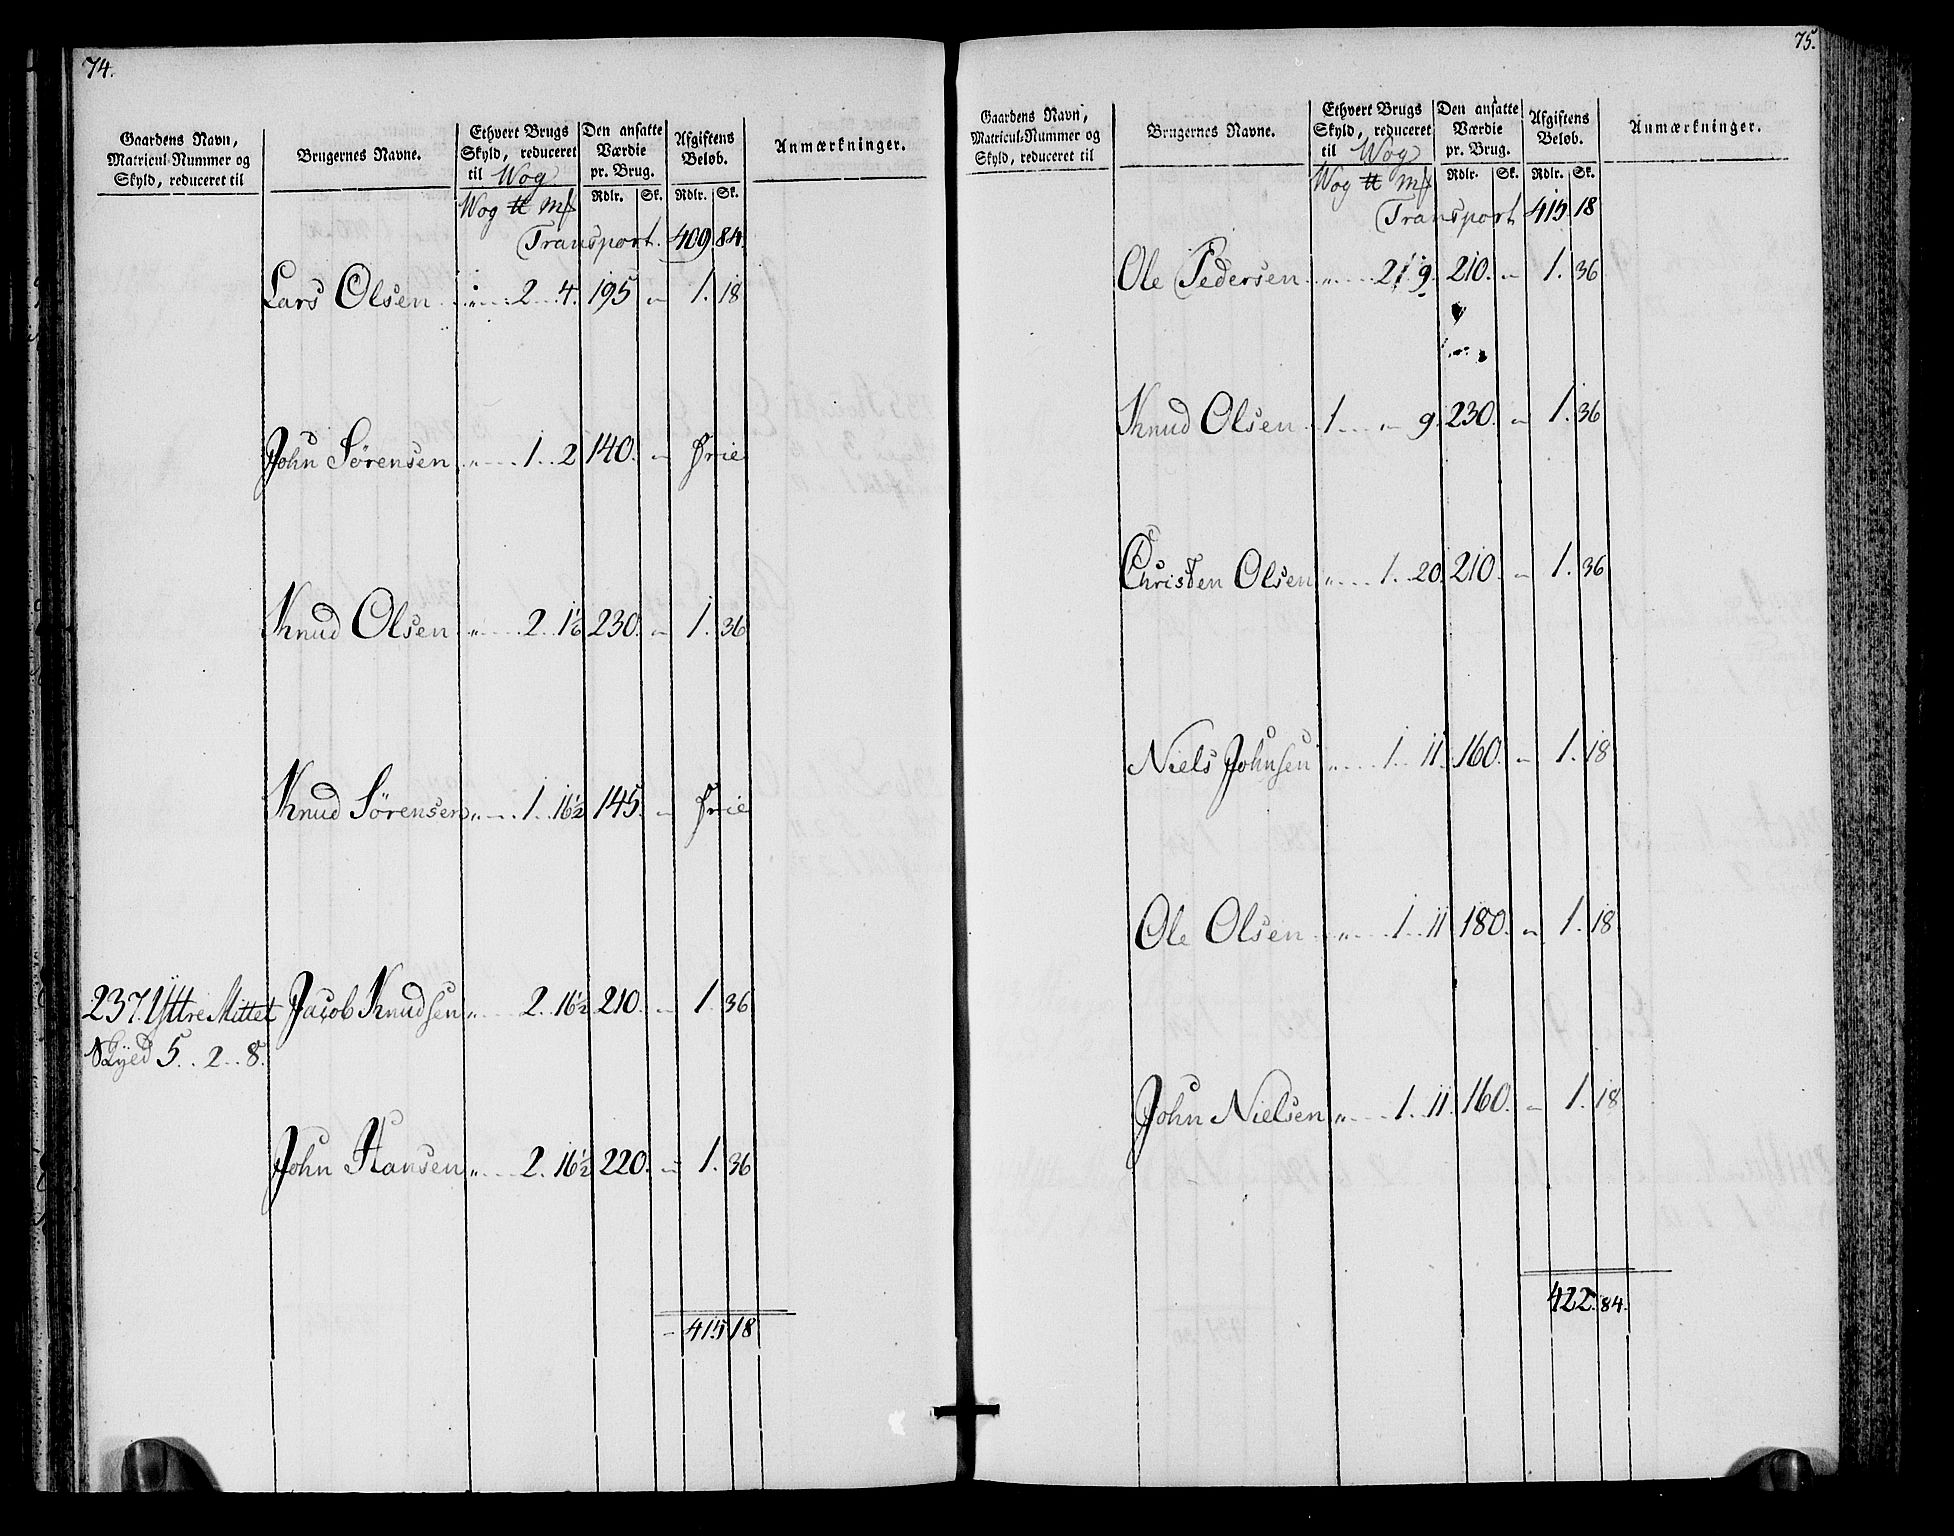 74.
Gaardens Navn, Matricul-Nummer og Skyld, reduceret til
Brugernes Navne.
Ethvert Brugs Skyld, reduceret til Wog
Den ansatte Værdie pr. Brug.
Afgiftens Beløb.
Anmærkninger.
Wog ℔ Mk Rdlr. Sk. Rdlr. Sk.
Transport. 409. 84.
Lars Olsen „ 2 4. 195 „ 1. 18
John Sørensen „ 1 2 140. „ Frie
Knud Olsen „ 2 1½ 230. „ 1. 36
Knud Sørensen „ 1. 16½ 145. „ Frie
237. Yttre Mittet Jacob Knudsen „ 2. 16½ 210. „ 1. 36
Skyld 5. . 2. . 8.
John Hansen „ 2. 16½ 220. „ 1. 36
415 18
75.
Gaardens Navn, Matricul-Nummer og Skyld, reduceret til
Brugernes Navne.
Ethvert Brugs Skyld, reduceret til Wog
Den ansatte Værdie pr. Brug.
Afgiftens Beløb.
Anmærkninger.
Wog ℔ Mk Rdlr. Sk. Rdlr. Sk.
Transport 415. 18
Ole Pedersen „ 2 9. 210. „ 1. 36
Knud Olsen 1 „ 9. 230. „ 1. 36
Christen Olsen „ 1. 20. 210. „ 1. 36
Niels Johnsen „ 1. 11. 160. „ 1. 18
Ole Olsen „ 1. 11 180. „ 1. 18
John Nielsen „ 1. 11. 160. „ 1. 18
422. 84.